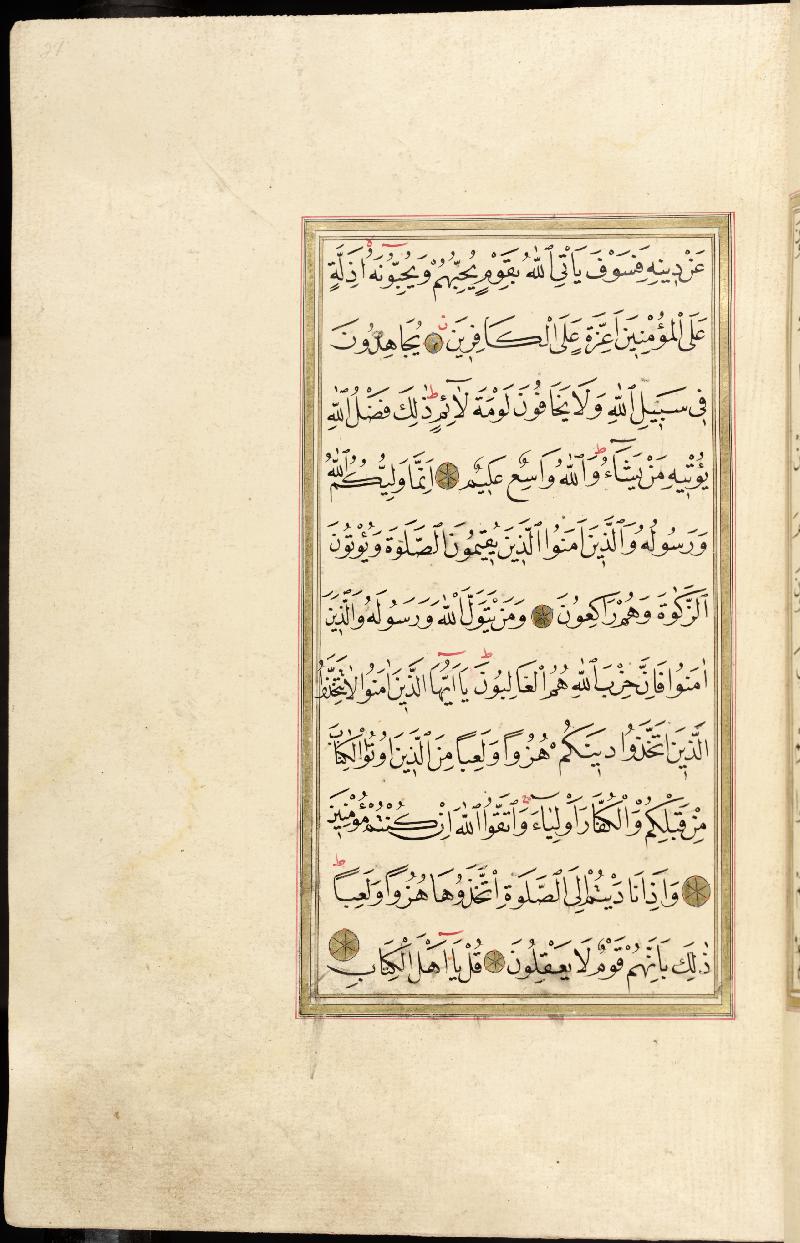 عَنْ دِينِهِ فَسَوْفَ يَاْتِي اللّٰهُ بِقَوْمٍ يُحِبُّهُمْ وَيُحِبُّونَهُ اَذِلَّةٍ
عَلَى الْمُؤْمِنِينَ اَعِزَّةٍ عَلَى الْكَافِرِينَ يُجَاهِدُونَ
فِي سَبِيلِ اللّٰهِ وَلَا يَخَافُونَ لَوْمَةَ لَائِمٍ ذٰلِكَ فَضْلُ اللّٰهِ
يُؤْتِيهِ مَنْ يَشَاءُ وَاللّٰهُ وَاسِعٌ عَلِيمٌ اِنَّمَا وَلِيُّكُمُ اللّٰهُ
وَرَسُولُهُ وَالَّذِينَ اٰمَنُوا الَّذِينَ يُقِيمُونَ الصَّلٰوةَ وَيُؤْتُونَ
الزَّكٰوةَ وَهُمْ رَاكِعُونَ وَمَنْ يَتَوَلَّ اللّٰهَ وَرَسُولَهُ وَالَّذِينَ
اٰمَنُوا فَاِنَّ حِزْبَ اللّٰهِ هُمُ الْغَالِبُونَ يَا اَيُّهَا الَّذِينَ اٰمَنُوا لَا تَتَّخِذُوا
الَّذِينَ اتَّخَذُوا دِينَكُمْ هُزُوًا وَلَعِبًا مِنَ الَّذِينَ اُوتُوا الْكِتَابَ
مِنْ قَبْلِكُمْ وَالْكُفَّارَ اَوْلِيَاءَ وَاتَّقُوا اللّٰهَ اِنْ كُنْتُمْ مُؤْمِنِينَ
وَاِذَا نَادَيْتُمْ اِلَى الصَّلٰوةِ اتَّخَذُوهَا هُزُوًا وَلَعِبًا
ذٰلِكَ بِاَنَّهُمْ قَوْمٌ لَا يَعْقِلُونَ قُلْ يَا اَهْلَ الْكِتَابِ